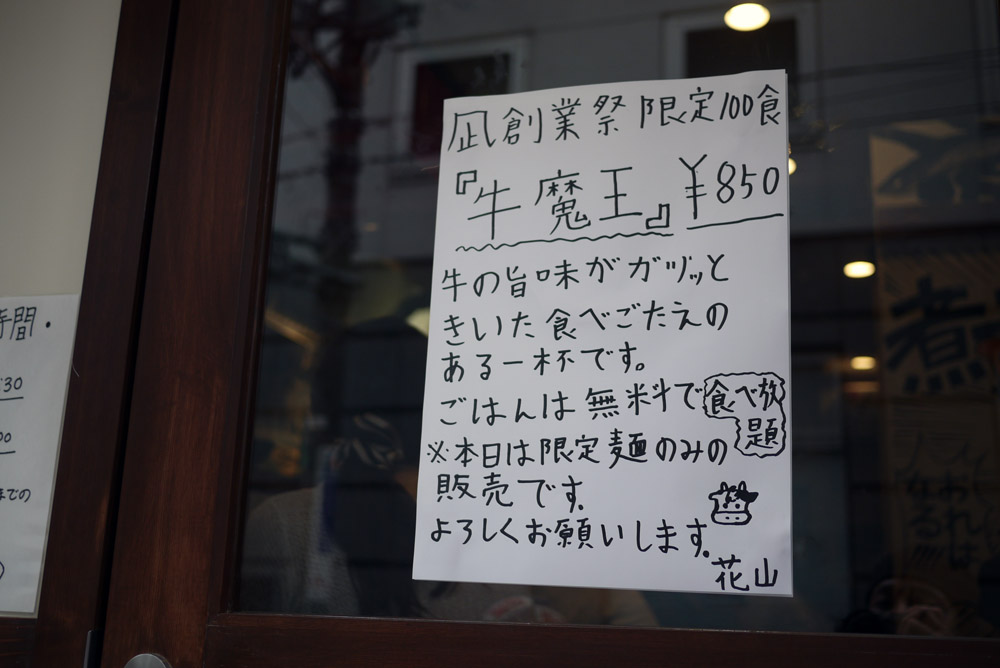 凪創業祭 限定100食
『牛魔王』 ¥850
牛の旨味がガツッと
きいた食べごたえの
ある一杯です。
ごはんは無料で食べ放
題
※本日は限定麺のみの
販売です。
よろしくお願いします。
花山
時間・
:30
00
までの
煮